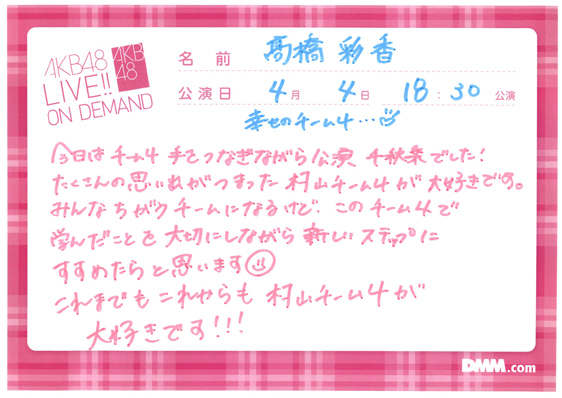 AKB48
LIVE!!
ON DEMAND
AKB
48
名前 髙橋 彩香
公演日 4月 4日 18:30 公演
幸せのチーム4…
今日はチーム4 手をつなぎながら公演 千秋楽でした!
たくさんの思い出がつまった 村山チーム4が 大好きです。
みんなちがうチームになるけど、このチーム4で
学んだことを大切にしながら 新しいステップに
すすめたらと思います
これまでもこれからも 村山チーム4が
大好きです!!!
DMM.com